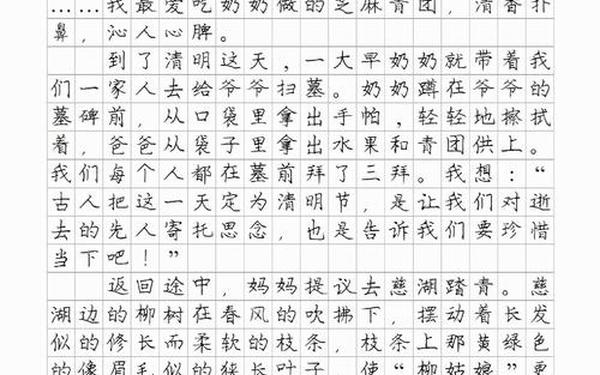 ……我最爱吃奶奶做的芝麻青团，清香扑
鼻，沁人心脾。
到了清明这天，一大早奶奶就带着我
们一家人去给爷爷扫墓。奶奶蹲在爷爷的
墓碑前，从口袋里拿出手帕，轻轻地擦拭
着，爸爸从袋子里拿出水果和青团供上。
我们每个人都在墓前拜了三拜。我想：“
古人把这一天定为清明节，是让我们对逝
去的先人寄托思念，也是告诉我们要珍惜
当下吧！”
返回途中，妈妈提议去慈湖踏青。慈
湖边的柳树在春风的吹拂下，摆动着长发
似的修长而柔软的枝条，枝条上那黄绿色
的像眉毛似的狭长叶子，使“柳姑娘”更